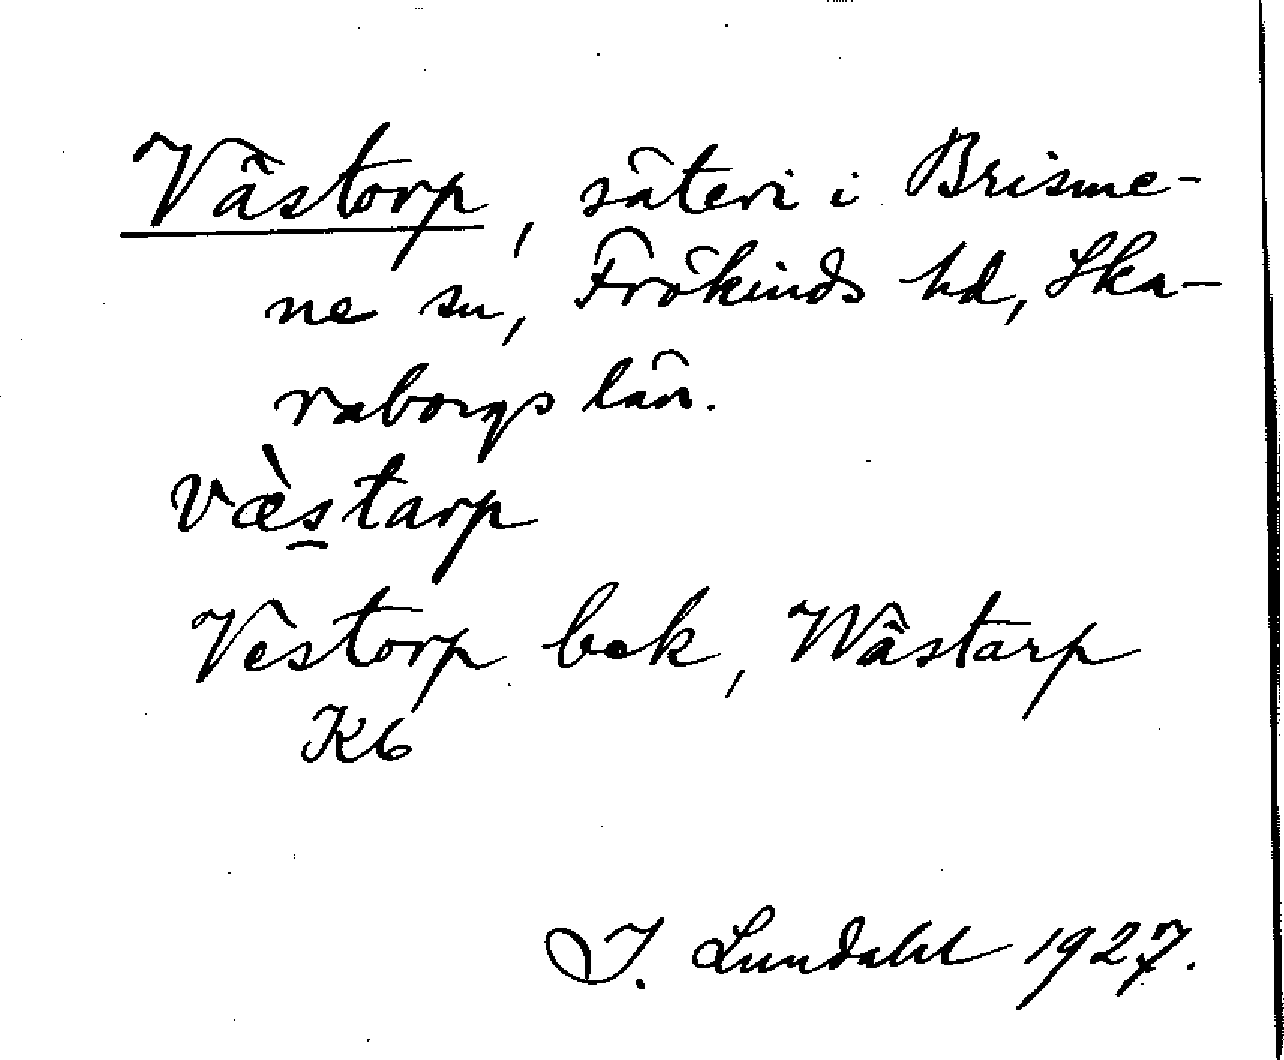 Västorp, säteri i Brisme-
ne sn, Frökinds hd, Ska-
raborgs län.
væ̀s̠tarp
Vestorp bek, Wästarp
Kb
I. Lundahl 1927.